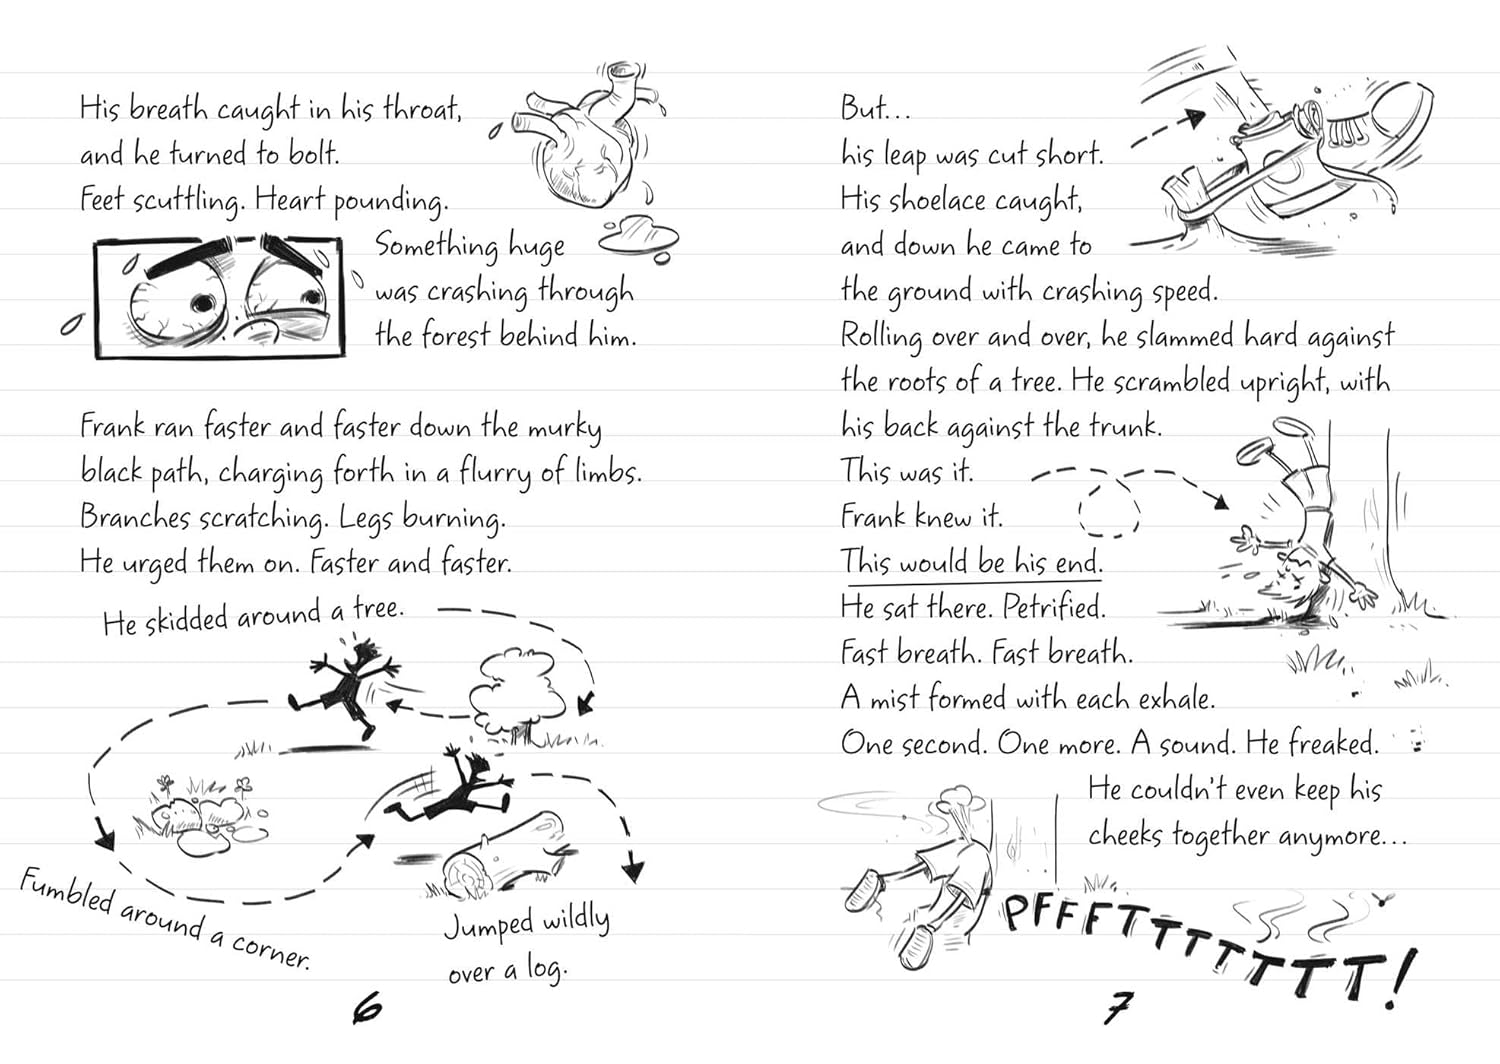 His breath caught in his throat,
and he turned to bolt.
Feet scuttling. Heart pounding.
Something huge
was crashing through
the forest behind him.
Frank ran faster and faster down the murky
black path, charging forth in a flurry of limbs.
Branches scratching. Legs burning.
He urged them on. Faster and faster.
He skidded around a tree.
Fumbled around a corner.
Jumped wildly
over a log.
6
But...
his leap was cut short.
His shoelace caught,
and down he came to
the ground with crashing speed.
Rolling over and over, he slammed hard against
the roots of a tree. He scrambled upright, with
his back against the trunk.
This was it.
Frank knew it.
This would be his end.
He sat there. Petrified.
Fast breath. Fast breath.
A mist formed with each exhale.
One second. One more. A sound. He freaked.
He couldn't even keep his
cheeks together anymore...
PFFFTTTTTTTT!
7